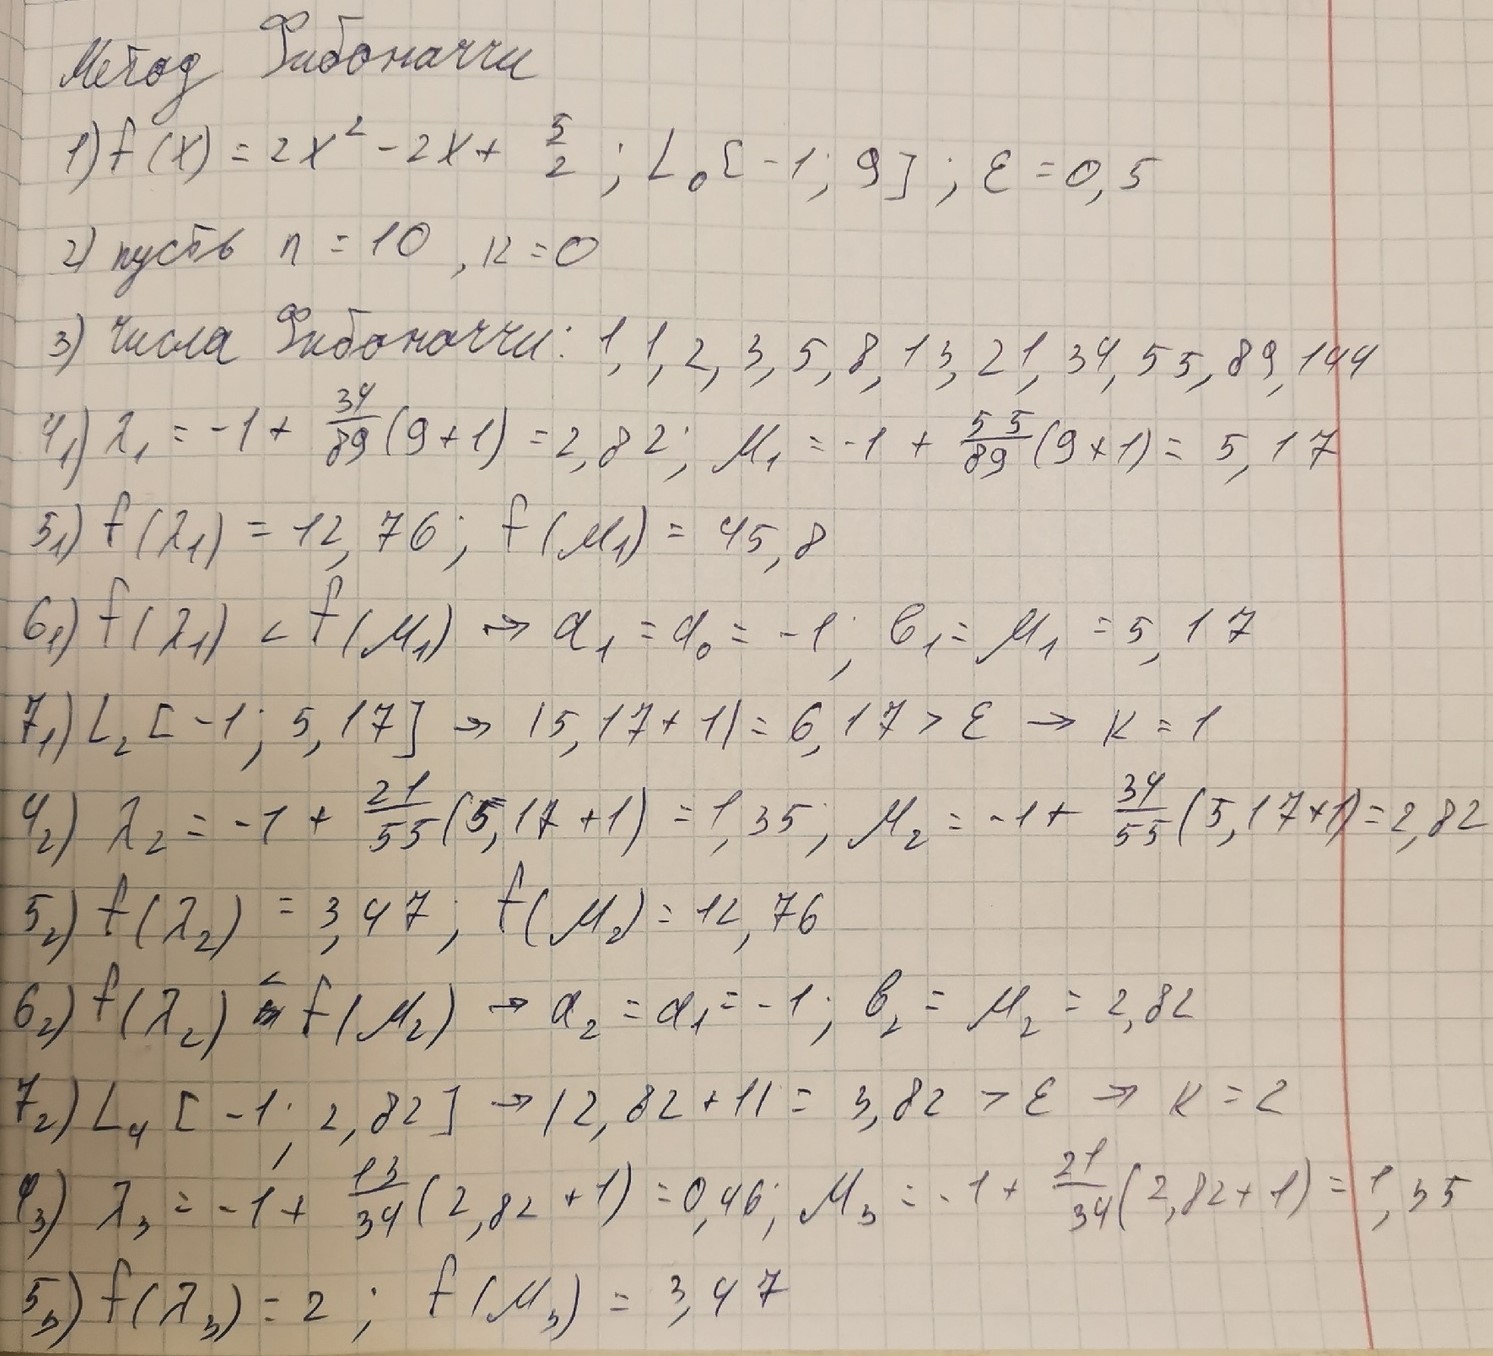 Метод Фибоначчи
1) f(x) = 2x² - 2x + 5/2 ; L₀[-1; 9] ; ε = 0,5
2) пусть n = 10 , к = 0
3) Числа Фибоначчи: 1, 1, 2, 3, 5, 8, 13, 21, 34, 55, 89, 144
4₁) λ₁ = -1 + 34/89 (9+1) = 2,82; μ₁ = -1 + 55/89 (9+1) = 5,17
5₁) f(λ₁) = 12,76; f(μ₁) = 45,8
6₁) f(λ₁) < f(μ₁) → a₁ = a₀ = -1; b₁ = μ₁ = 5,17
7₁) L₂ [-1; 5,17] → |5,17+1| = 6,17 > ε → к = 1
4₂) λ₂ = -1 + 21/55 (5,17+1) = 1,35; μ₂ = -1 + 34/55 (5,17+1) = 2,82
5₂) f(λ₂) = 3,47; f(μ₂) = 12,76
6₂) f(λ₂) < f(μ₂) → a₂ = a₁ = -1; b₂ = μ₂ = 2,82
7₂) L₄ [-1; 2,82] → |2,82+1| = 3,82 > ε → к = 2
4₃) λ₃ = -1 + 13/34 (2,82+1) = 0,46; μ₃ = -1 + 21/34 (2,82+1) = 1,35
5₃) f(λ₃) = 2 ; f(μ₃) = 3,47